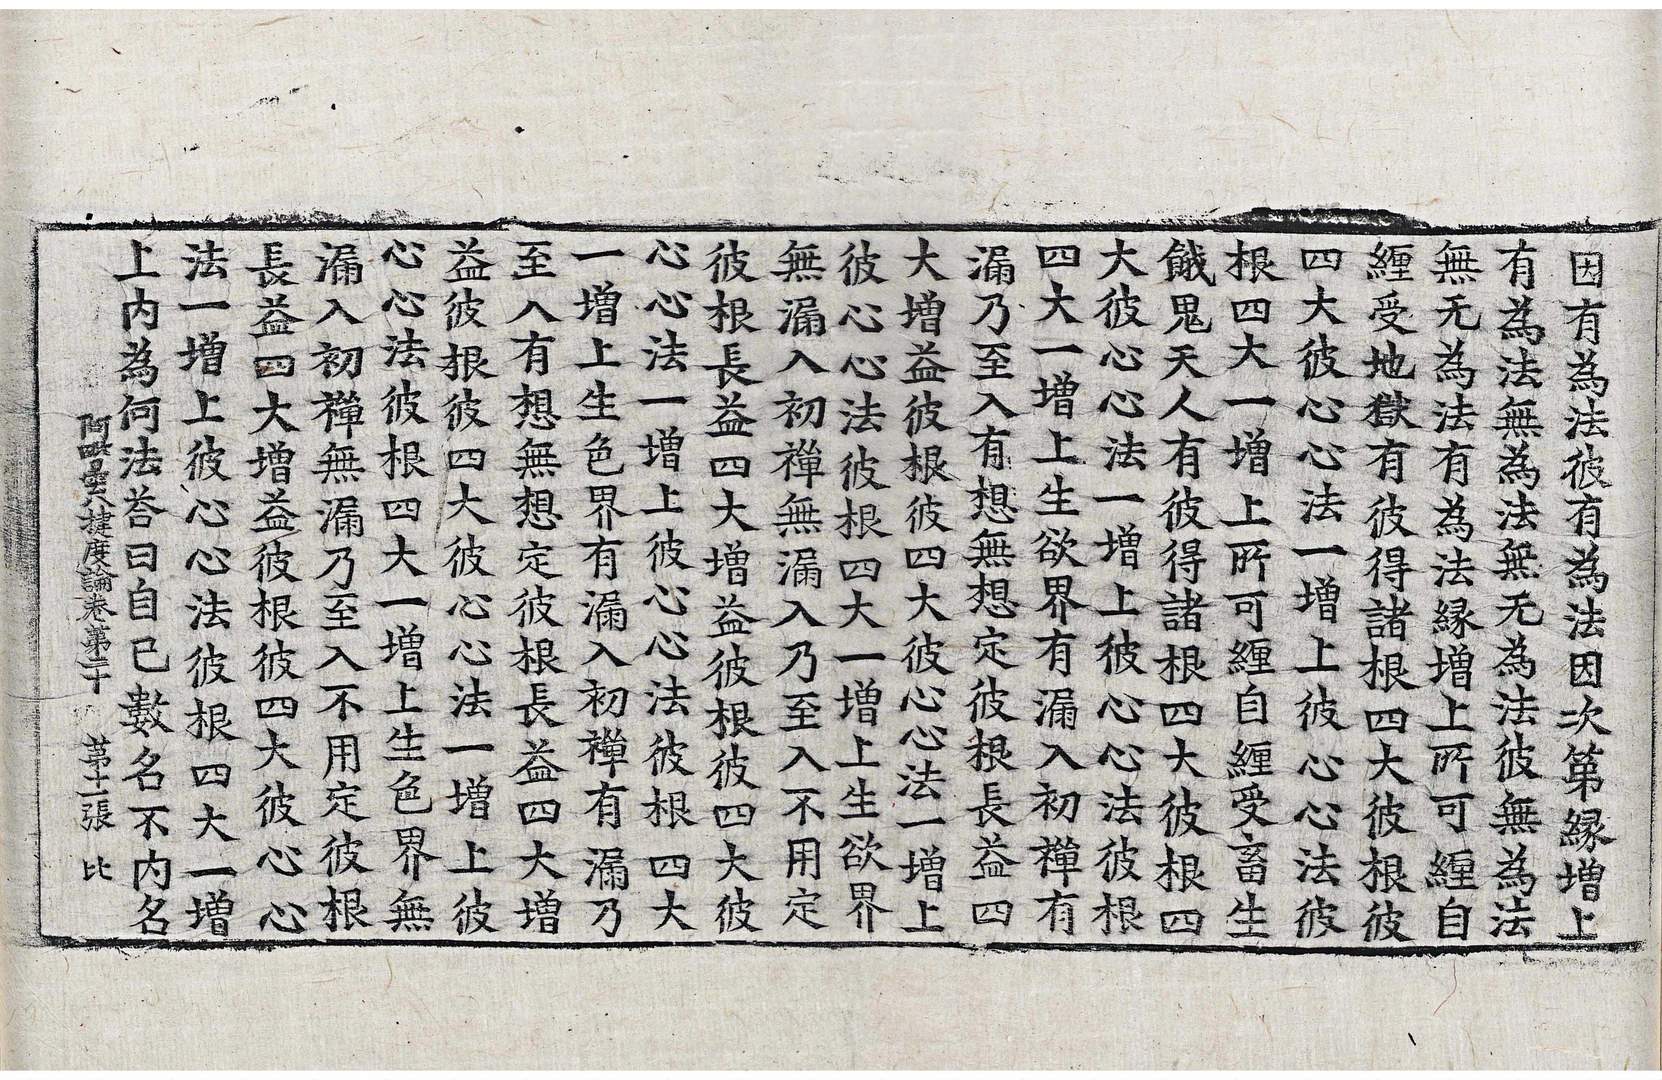 因有為法彼有為法因次第縁増上
有為法無為法無无為法彼無為法
無无為法有為法縁増上所可纒自
纒受地獄有彼得諸根四大彼根彼
四大彼心心法一増上彼心心法彼
根四大一増上所可纒自纒受畜生
餓鬼天人有彼得諸根四大彼根四
大彼心心法一増上彼心心法彼根
四大一増上生欲界有漏入初禪有
漏乃至入有想無想定彼根長益四
大増益彼根彼四大彼心心法一増上
彼心心法彼根四大一増上生欲界
無漏入初禪無漏入乃至入不用定
彼根長益四大増益彼根彼四大彼
心心法一増上彼心心法彼根四大
一増上生色界有漏入初禪有漏乃
至入有想無想定彼根長益四大増
益彼根彼四大彼心心法一増上彼
心心法彼根四大一増上生色界無
漏入初禪無漏乃至入不用定彼根
長益四大増益彼根彼四大彼心心
法一増上彼心心法彼根四大一増
上内為何法荅曰自已數名不内名
阿毗曇八揵度論卷第二十 第十一張 比